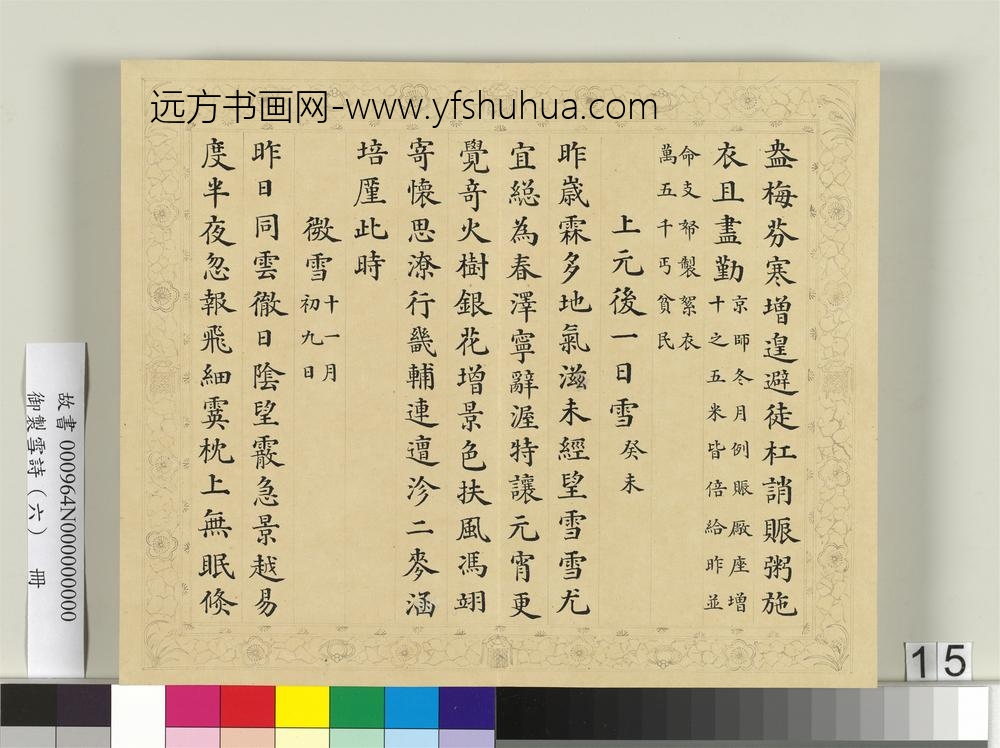 远方书画网-www.yfshuhua.com
盎梅芬寒增遑避徒杠誚賑粥施
衣且盡勤京師冬月例賑廠座增
十之五米皆倍給昨並
命支帑製絮衣
萬五千丐貧民
上元後一日雪癸未
昨歲霖多地氣滋未經望雪雪尤
宜緫為春澤寧辭渥特讓元宵更
覺竒火樹銀花增景色扶風馮翊
寄懷思潦行畿輔連邅沴二麥涵
培厪此時
微雪十一月
初九日
昨日同雲徹日陰望霰急景越易
度半夜忽報飛細霙枕上無眠倐
故書 000964N000000000
御製雪詩(六) 冊
15